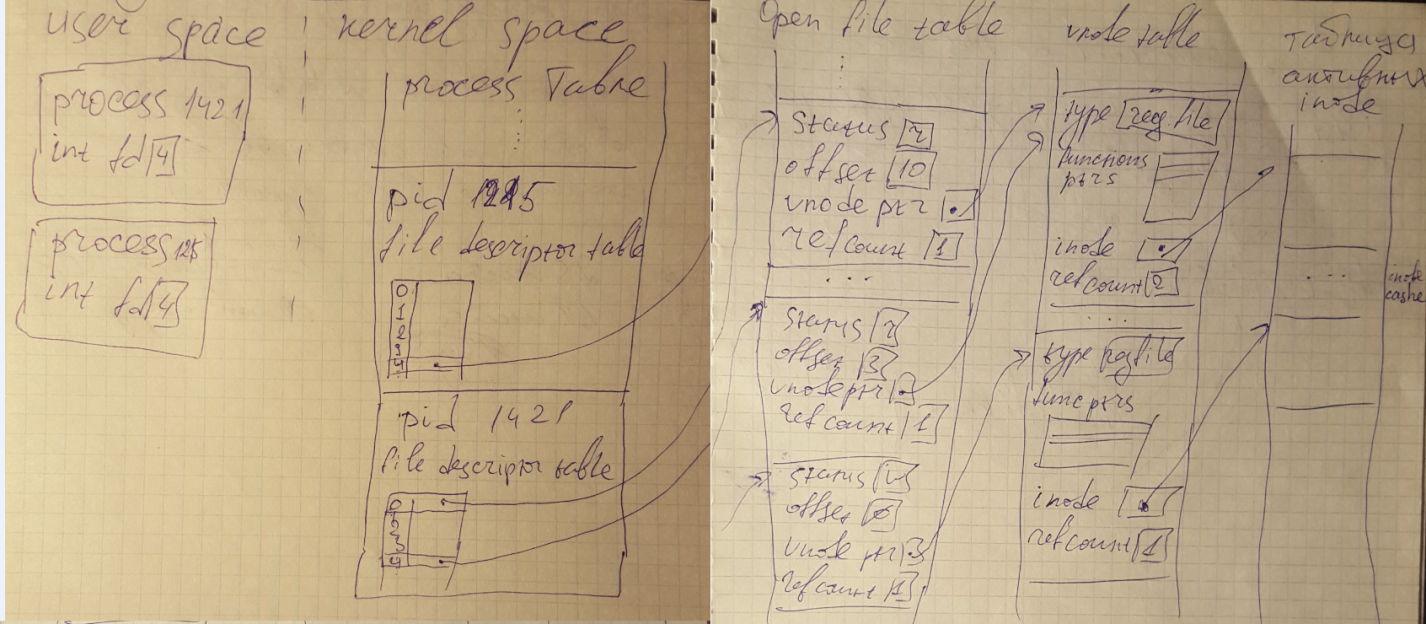 user space
kernel space
process 1421
int fd 4
process 125
int fd 4
process Table
pid 1215
file descriptor table
0
1
2
3
4
pid 1421
file descriptor table
0
1
2
3
4
Open file table
status r
offset 10
vnode ptr
ref count 1
...
status r
offset 3
vnode ptr
ref count 1
status w
offset 0
vnode ptr
ref count 1
vnode table
type reg. file
functions
ptrs
inode
ref count 2
...
type reg file
func ptrs
inode
ref count 1
таблица
активных
inode
...
inode
cashe